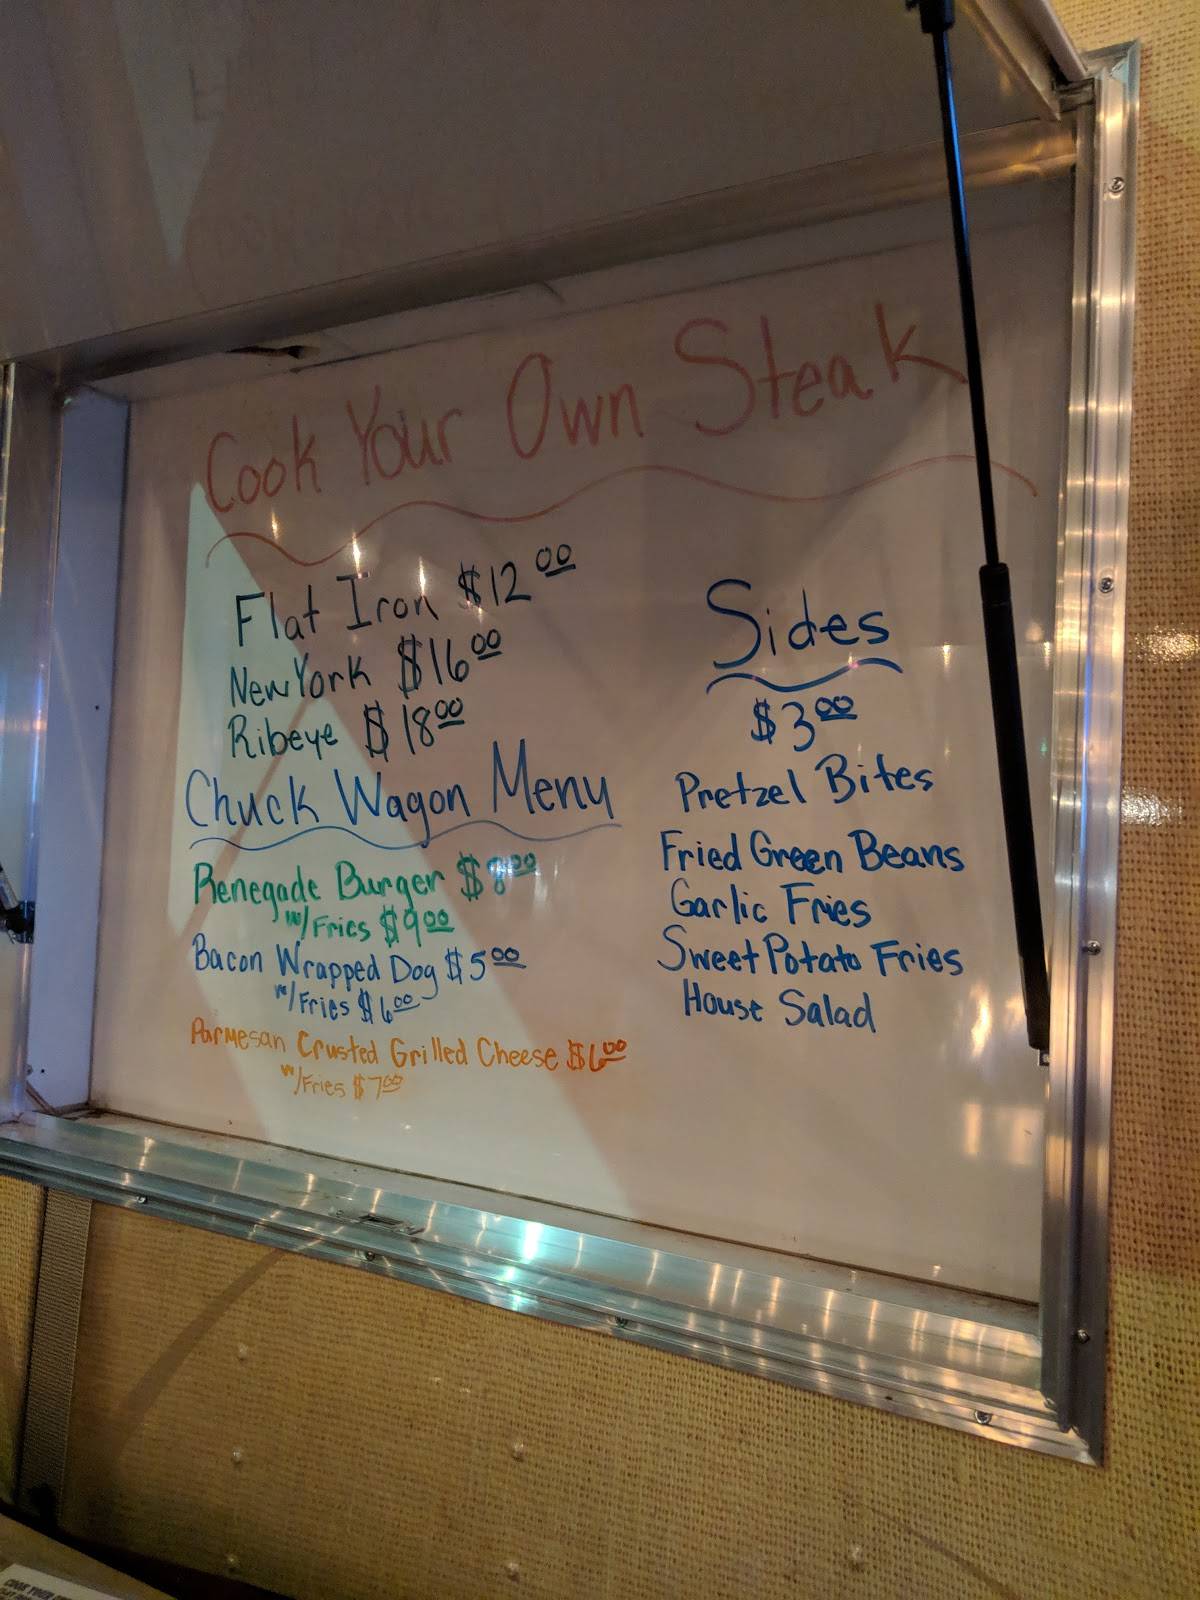 Cook Your Own Steak
Flat Iron $12 00
New York $16 00
Ribeye $18 00
Chuck Wagon Menu
Renegade Burger $8 00
w/Fries $9 00
Bacon Wrapped Dog $5 00
w/Fries $6 00
Parmesan Crusted Grilled Cheese $6 00
w/Fries $7 00
Sides
$3 00
Pretzel Bites
Fried Green Beans
Garlic Fries
Sweet Potato Fries
House Salad
COOK YOUR